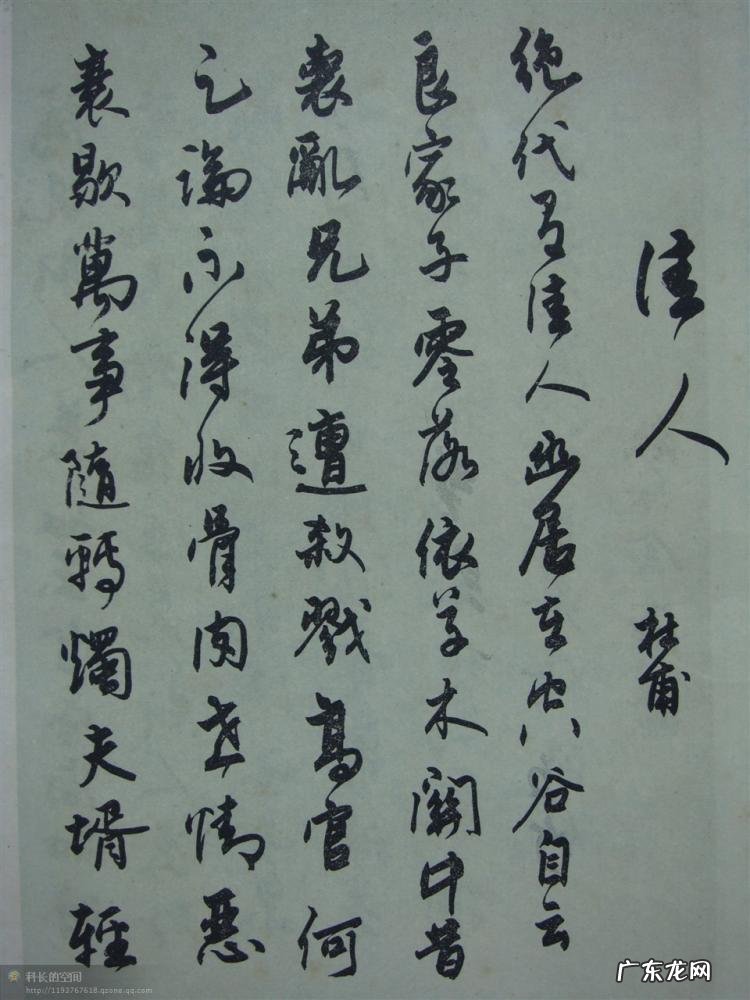 佳人
杜甫
絕代有佳人幽居在空谷自云
良家子零落依草木關中昔
喪亂兄弟遭殺戮高官何
足論不得收骨肉世情惡
衰歇萬事隨轉燭夫壻輕
科长的空间
http://1193767618.qzone.qq.com
广东龙网